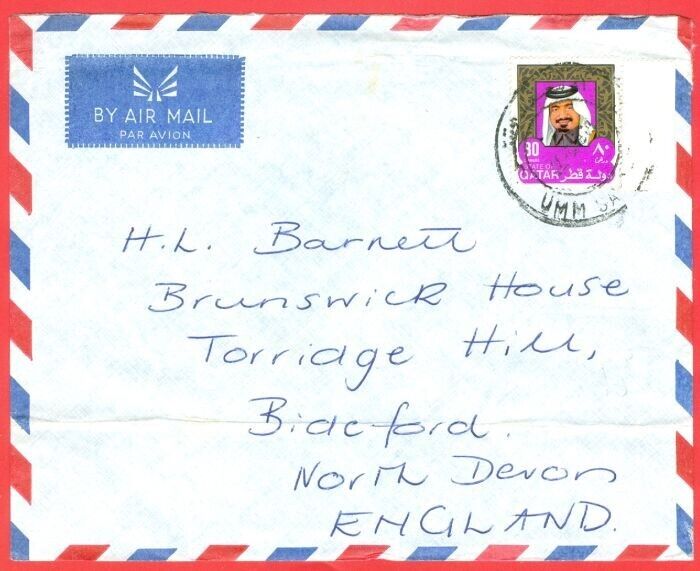 BY AIR MAIL
PAR AVION
80 ٨٠
STATE OF
QATAR دولة قطر
UMM SA
H.L. Barnett
Brunswick House
Torridge Hill,
Bideford.
North Devon
ENGLAND.